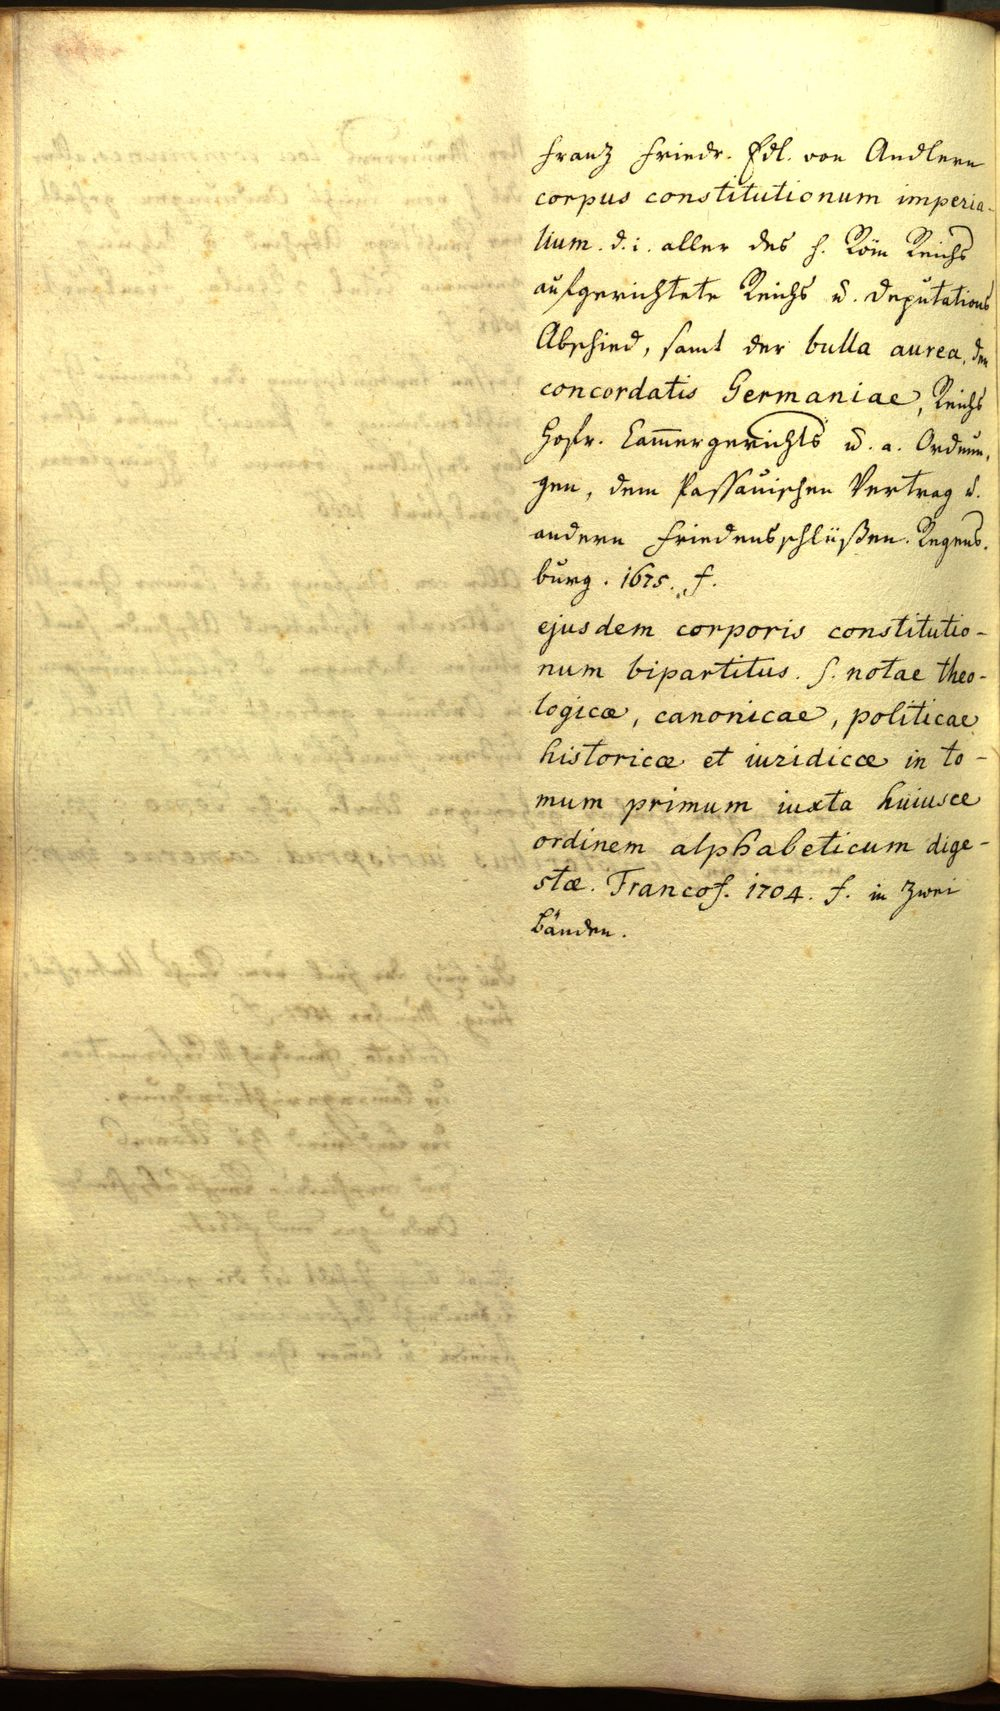 Franz Friedr. Edl. von Andlern
corpus constitutionum imperia-
lium. d. i. aller des h. Röm Reichs
aufgerichtete Reichs u. Deputations
Abschied, samt der bulla aurea, den
concordatis Germaniae, Reichs
Hofr. Cam̅ergerichts u. a. Ordnun-
gen, dem Passauischen Vertrag u.
andern Friedensschlüßen. Regens-
burg. 1675. f.
ejusdem corporis constitutio-
num bipartitus. S. notae theo-
logicæ, canonicae, politicae
historicæ et iuridicæ in to-
mum primum iuxta huiusce
ordinem alphabeticum dige-
stæ. Francof. 1704. f. in zwei
Bänden.